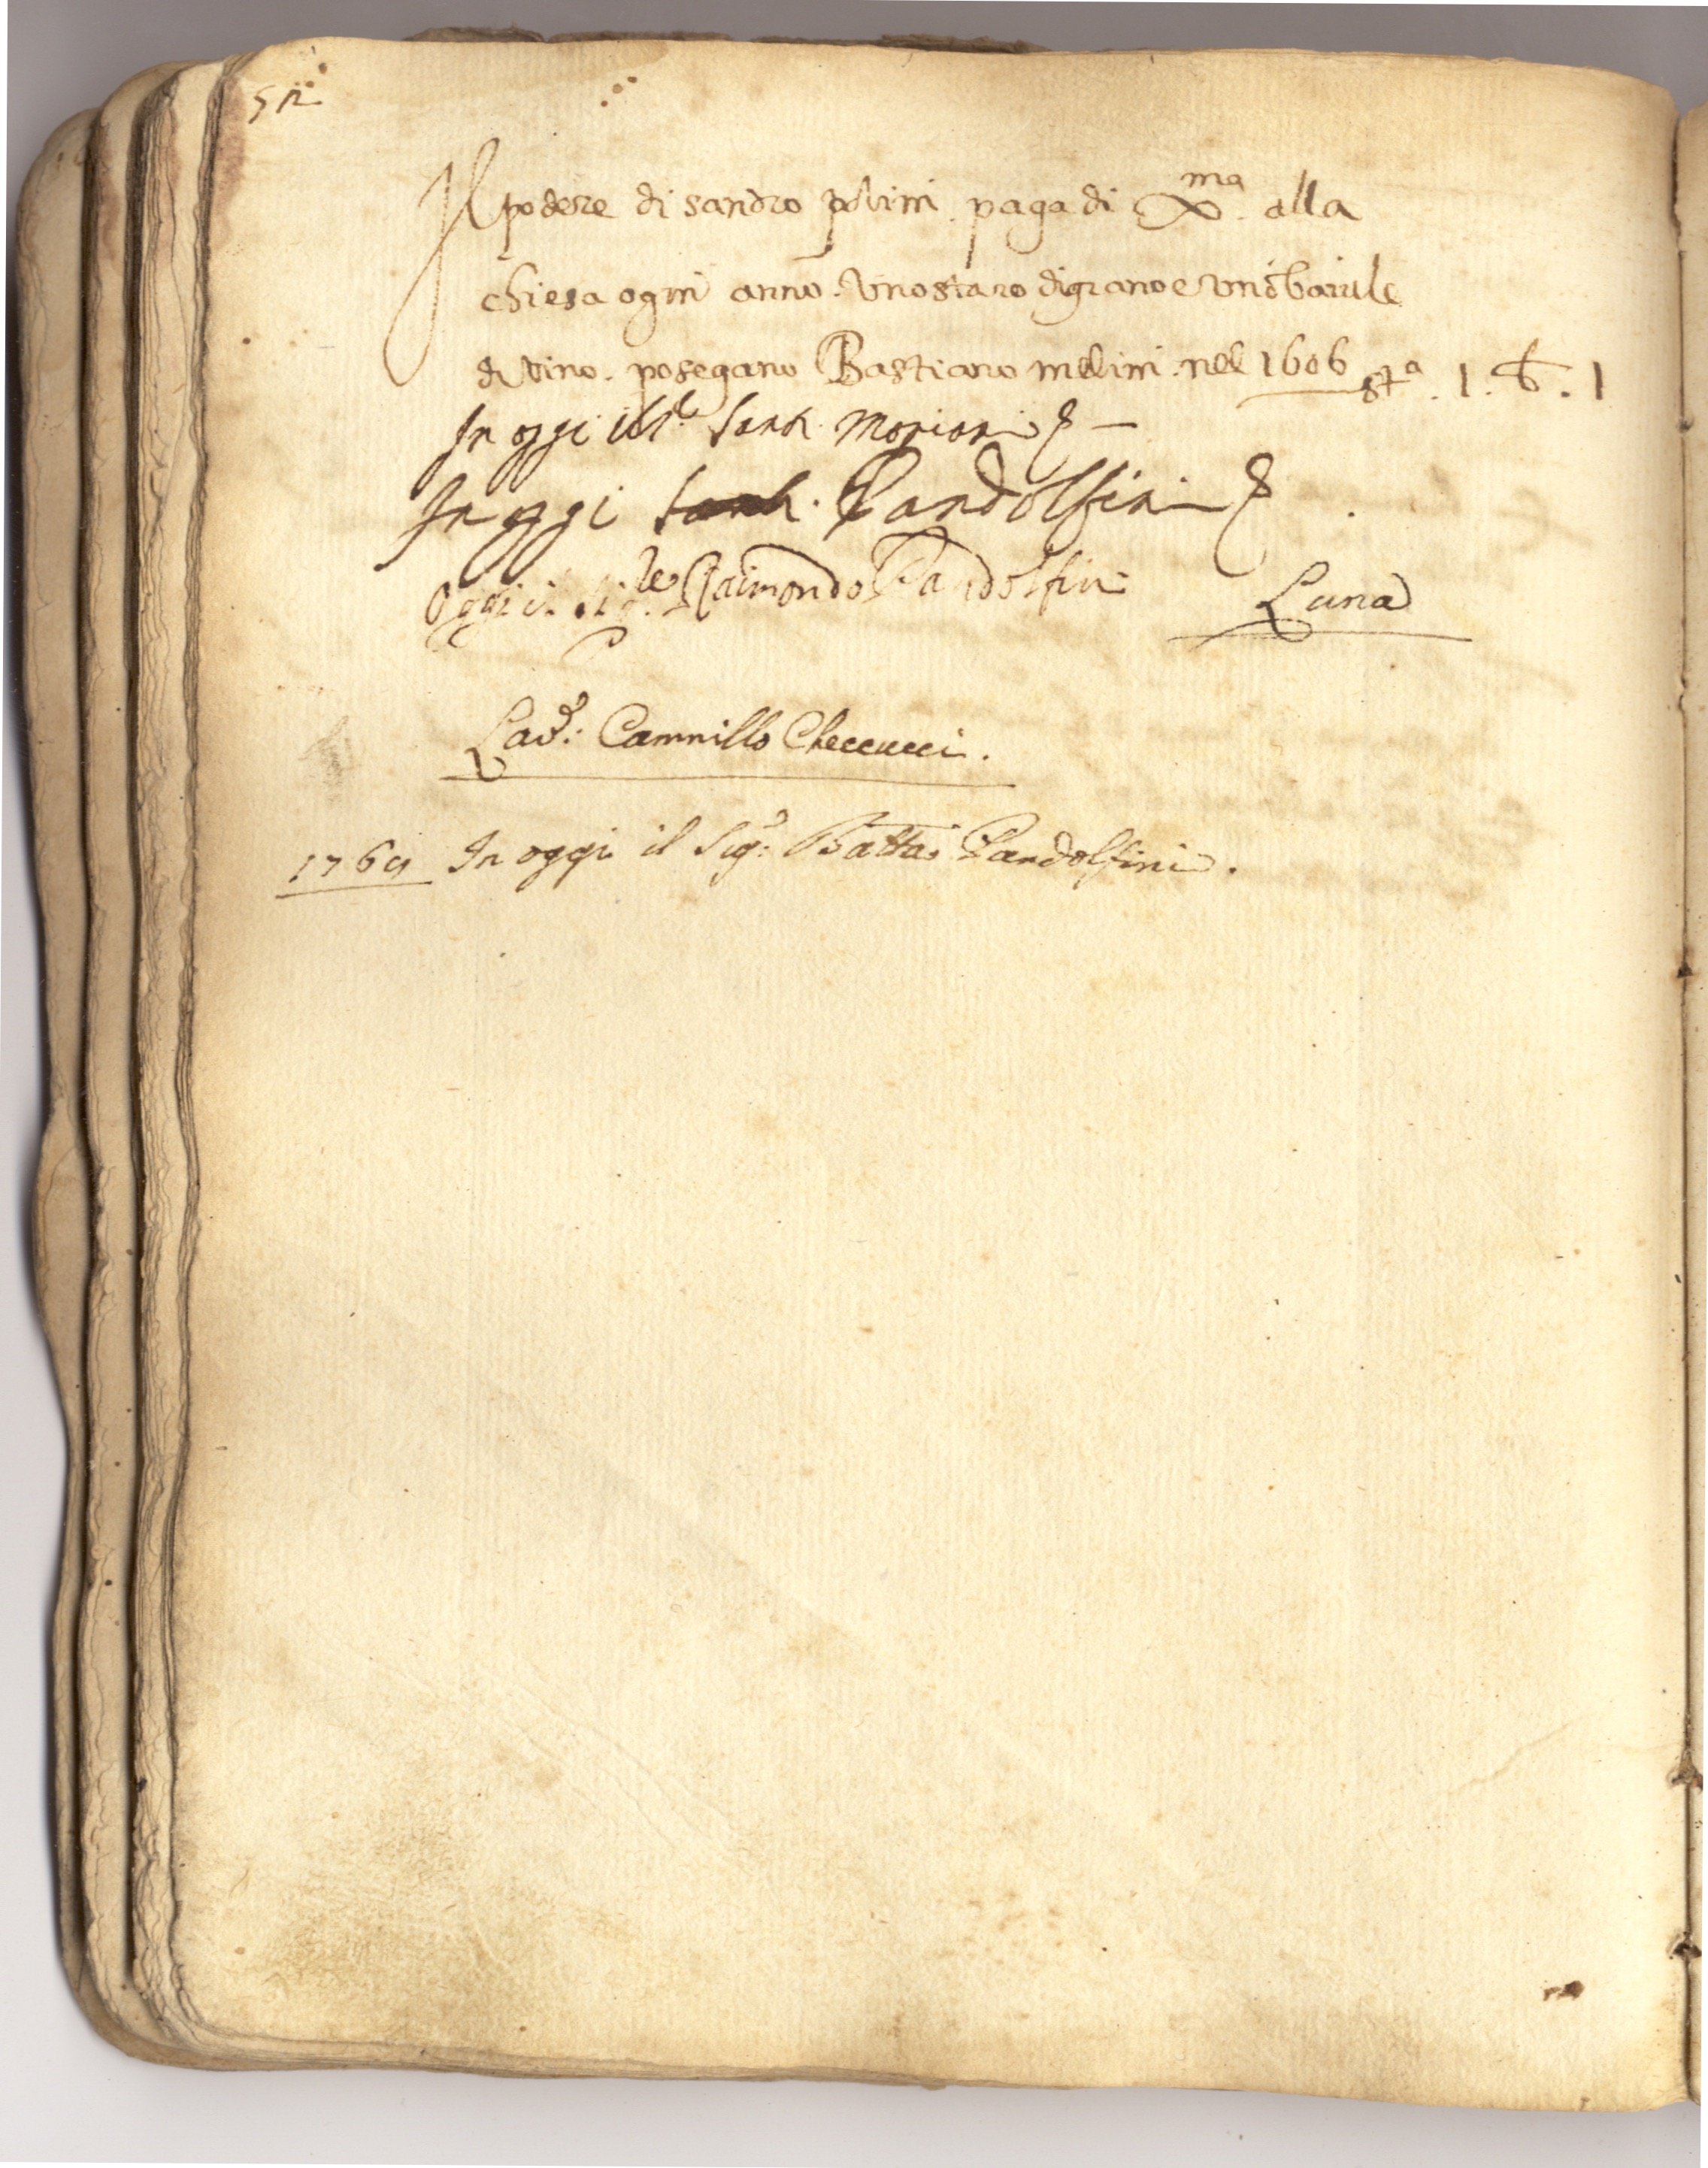 52
Il podere di sandro pulini. paga di Xma. alla
chiesa ogni anno. Uno staro di grano e un barile
di vino. posegano Bastiano melini. nel 1606 sta. 1. b. 1
In oggi Mariani
In oggi Pandolfini
Oggi il Sigle Raimondo Pandolfini
Luna
Lavre: Cammillo Checcucci.
1769 In oggi il Sigre: Batta Pandolfini.